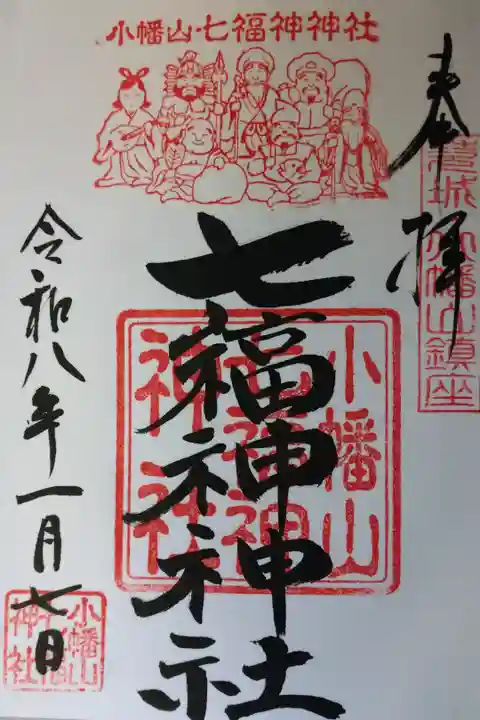 小幡山・七福神神社
奉拝
城小幡山鎮座
七福神神社
小幡山
七福神
神社
令和八年一月七日
小幡山
神社